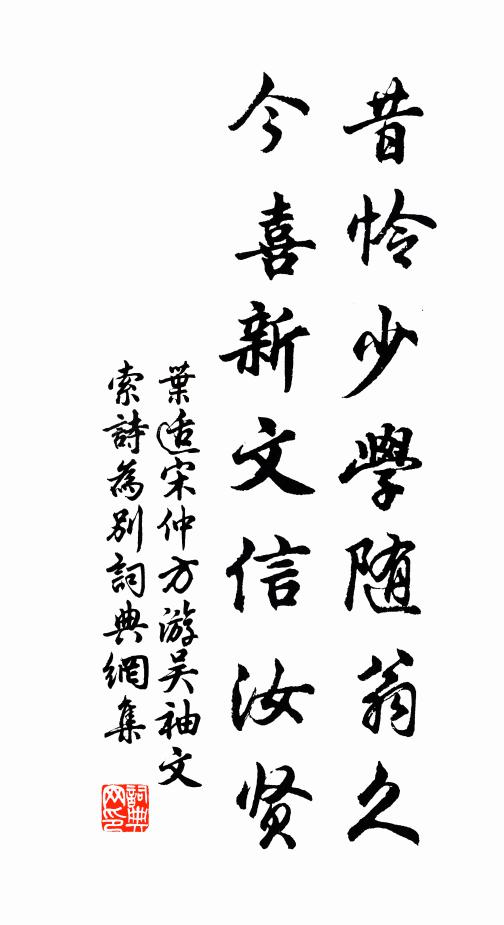 昔怜少學随翁久
今喜新文信汝贤
葉适宋仲方游吴袖文
索詩為别詞典網集
詞典网印